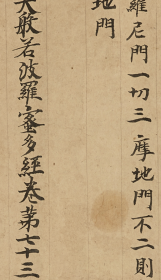 羅尼門一切三摩地門不二則
地門
大般若波羅蜜多經卷第七十三